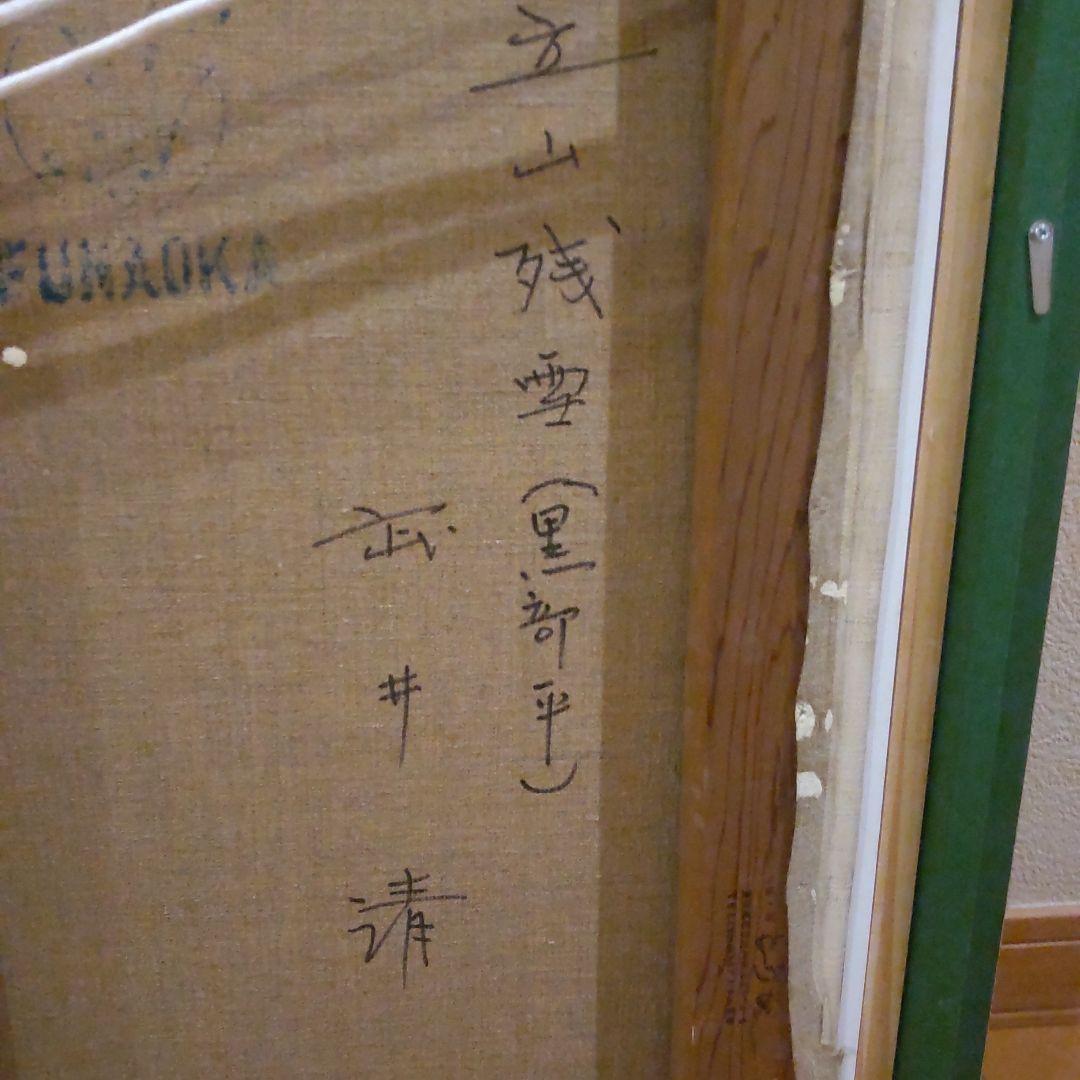 立山残雪(黒部平)
武井清
FUNAOKA